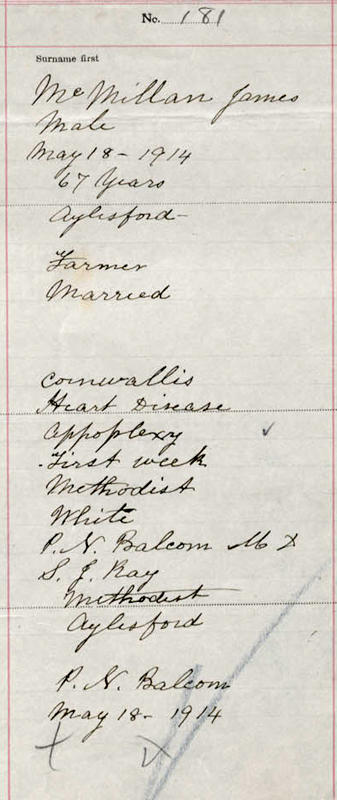 No. 181
Surname first
McMillan James
Male
May 18 - 1914
67 Years
Aylesford -
Farmer
Married
Cornwallis
Heart Disease
Appoplexy
First week
Methodist
White
P. N. Balcom M D
S. J. Ray
Methodist
Aylesford
P. N. Balcom
May 18 - 1914